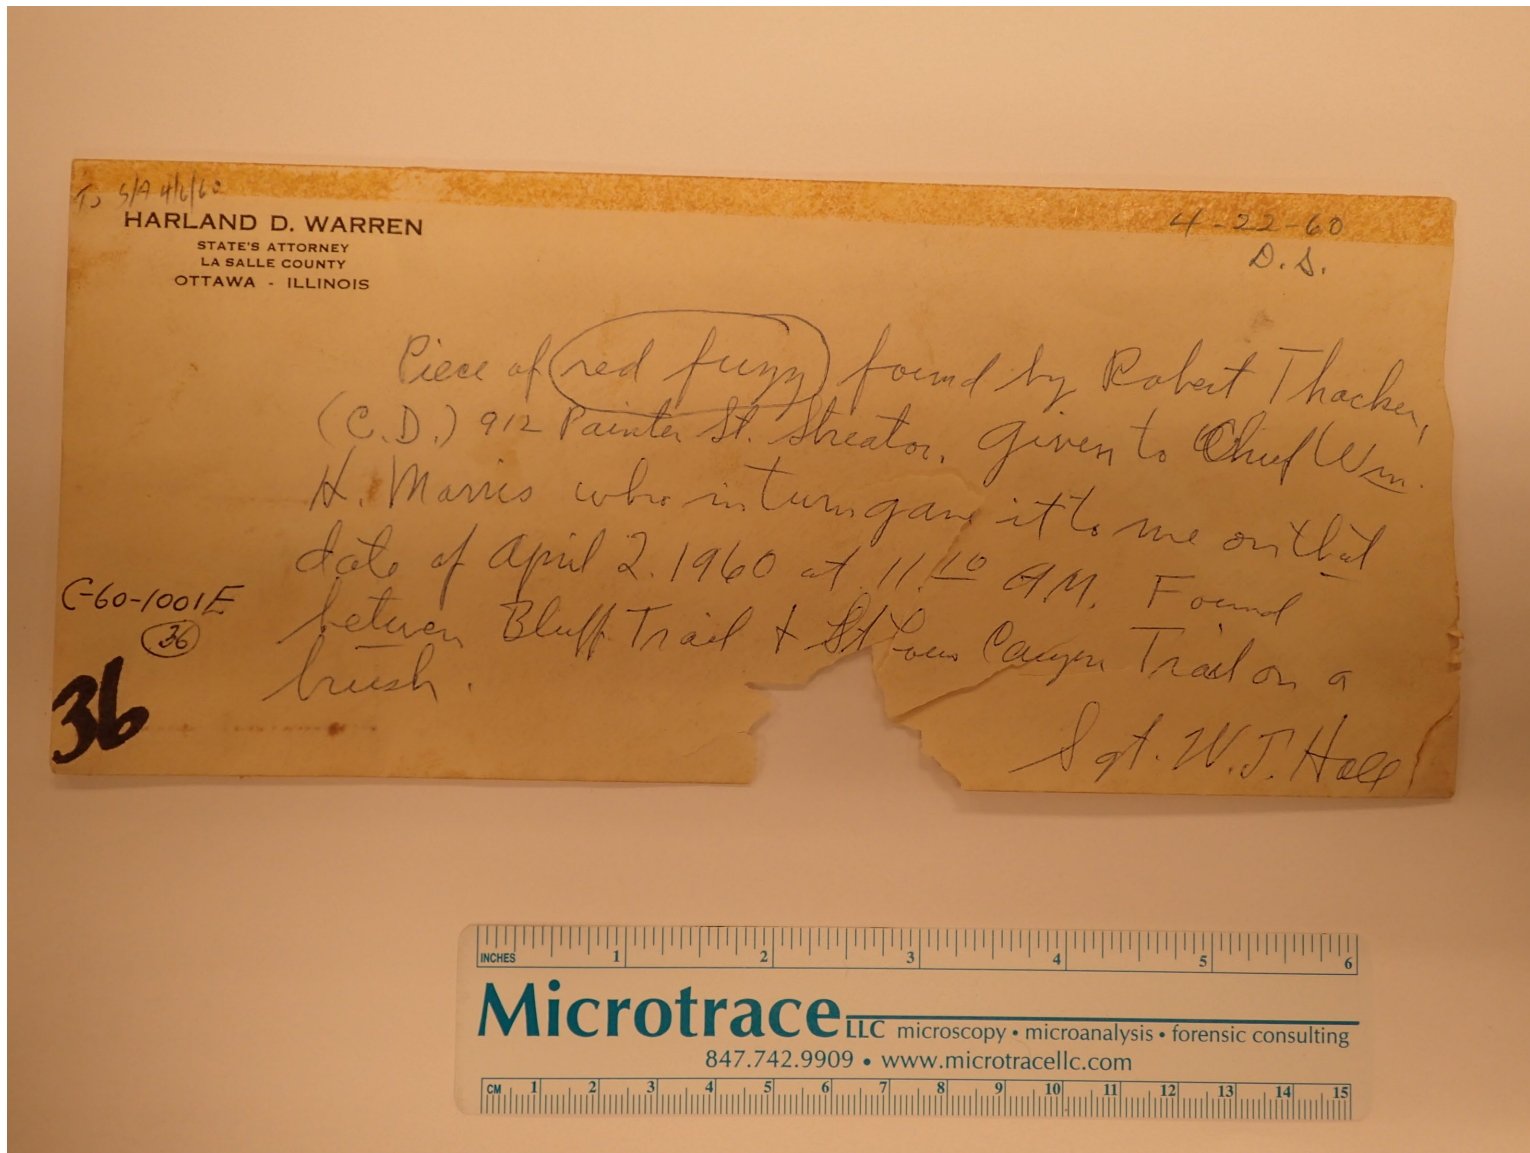 To S/A 4/6/60
HARLAND D. WARREN
STATE'S ATTORNEY
LA SALLE COUNTY
OTTAWA - ILLINOIS
4-22-60
D.S.
Piece of red fuzz found by Robert Thacker,
(C.D.) 912 Painter St. Streator, given to Chief Wm.
H. Morris who in turn gave it to me on that
date of April 2. 1960 at 11:10 A.M. Found
between Bluff Trail & St Louis Canyon Trail on a
brush.
C-60-1001E
36
36
Sgt. W.J. Hall
INCHES 1 2 3 4 5 6
Microtrace LLC microscopy • microanalysis • forensic consulting
847.742.9909 • www.microtracellc.com
CM 1 2 3 4 5 6 7 8 9 10 11 12 13 14 15